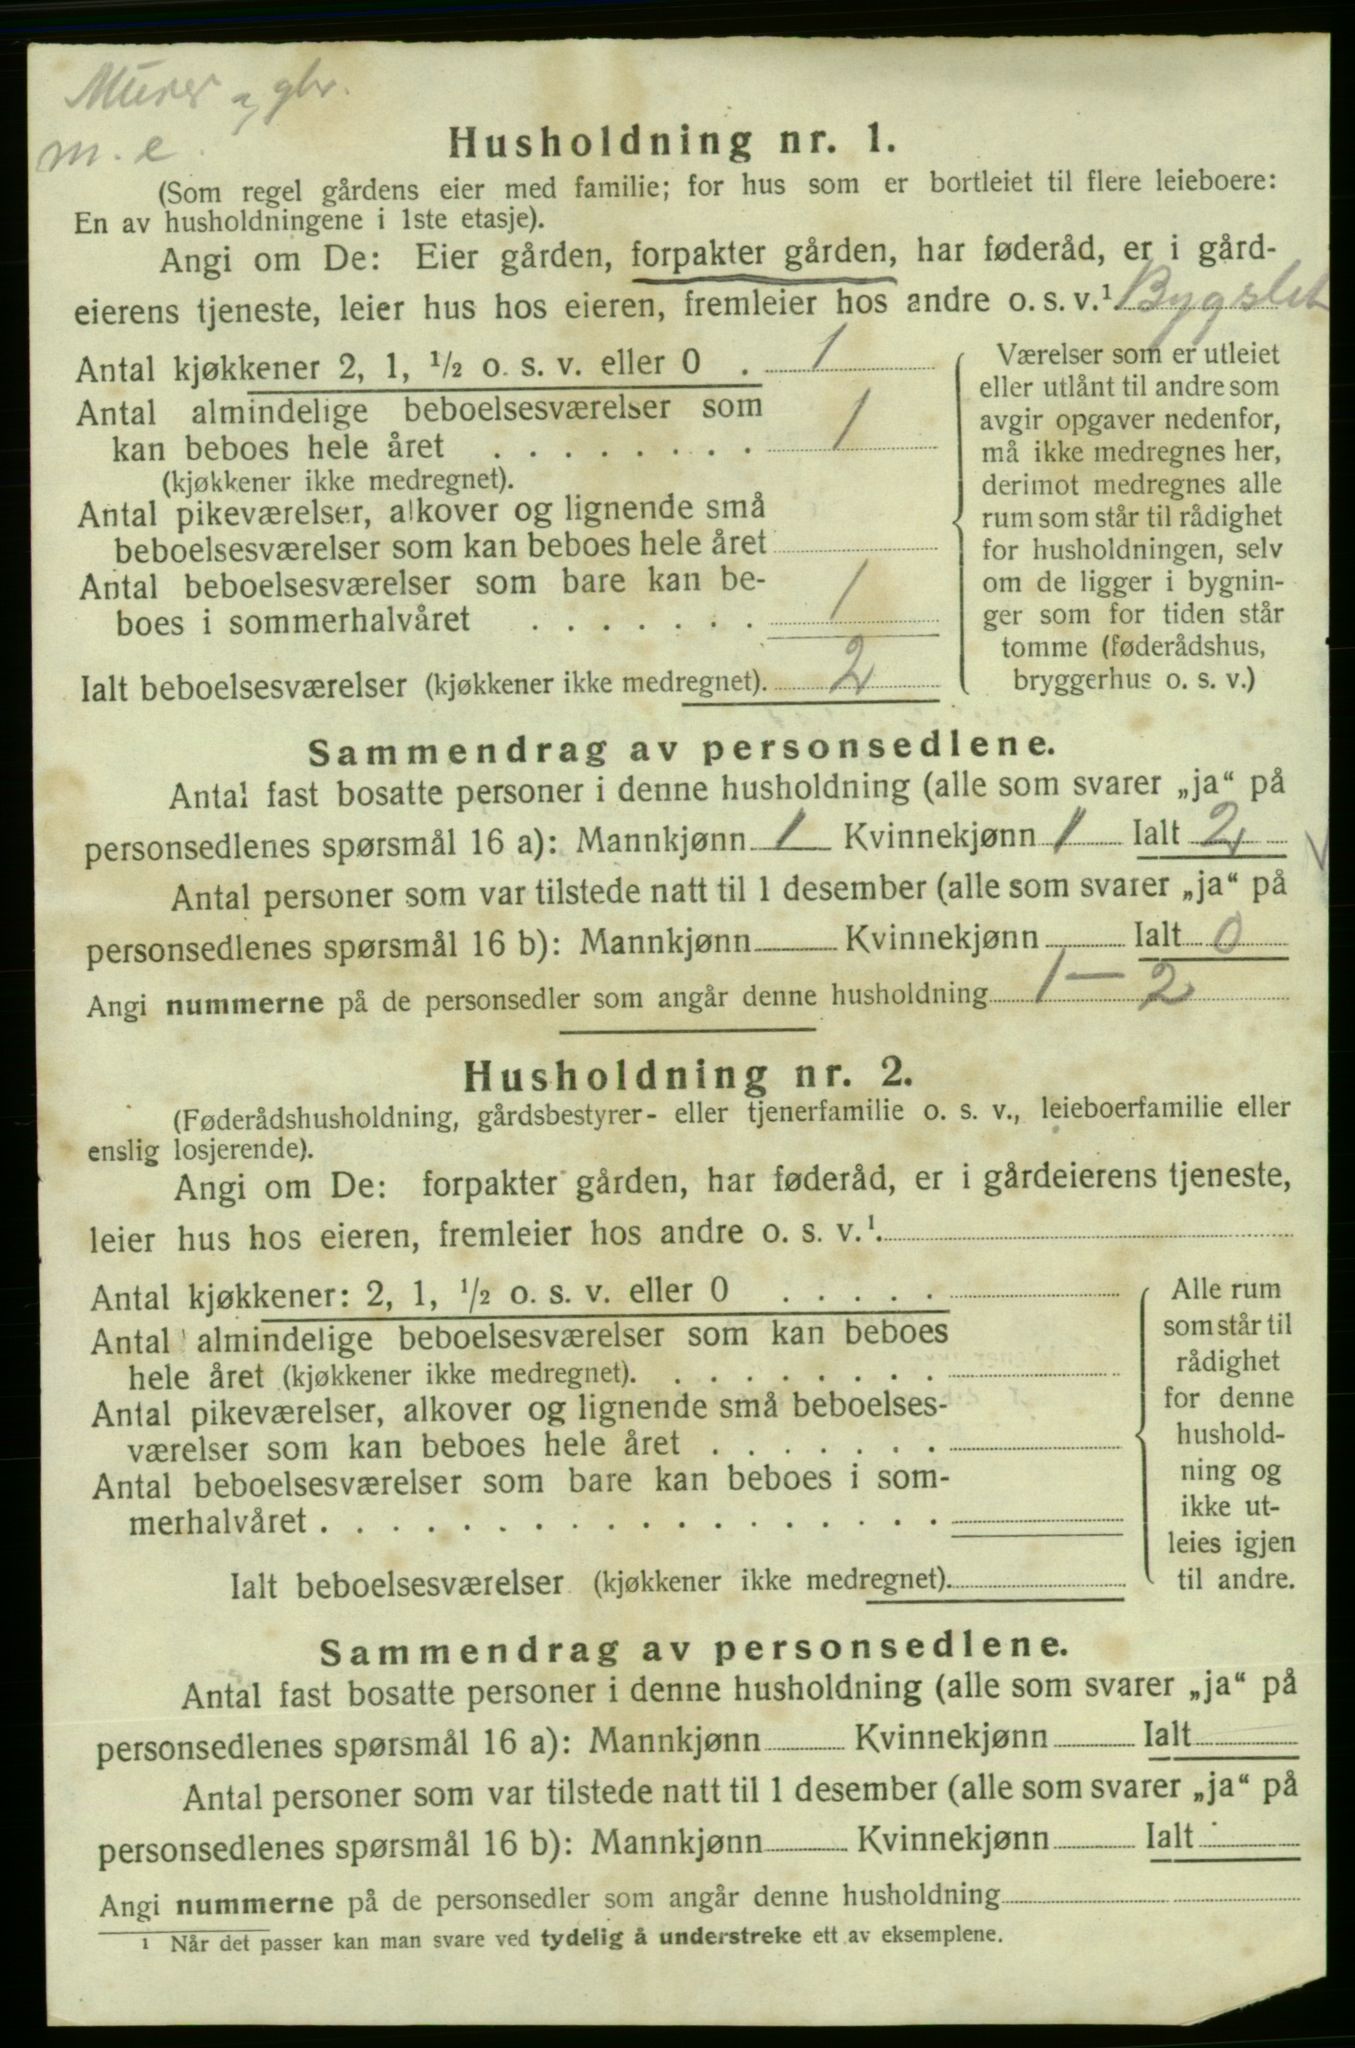 Murer og gbr.
m. e.
Husholdning nr. 1.
(Som regel gårdens eier med familie; for hus som er bortleiet til flere leieboere:
En av husholdningene i 1ste etasje).
Angi om De: Eier gården, forpakter gården, har føderåd, er i gård-
eierens tjeneste, leier hus hos eieren, fremleier hos andre o. s. v.¹ Bygslet
Antal kjøkkener 2, 1, ½ o. s. v. eller 0 . 1
Antal almindelige beboelsesværelser som
kan beboes hele året . . . . . . . . 1
(kjøkkener ikke medregnet).
Antal pikeværelser, alkover og lignende små
beboelsesværelser som kan beboes hele året
Antal beboelsesværelser som bare kan be-
boes i sommerhalvåret . . . . . . . 1
Ialt beboelsesværelser (kjøkkener ikke medregnet). 2
Værelser som er utleiet
eller utlånt til andre som
avgir opgaver nedenfor,
må ikke medregnes her,
derimot medregnes alle
rum som står til rådighet
for husholdningen, selv
om de ligger i bygnin-
ger som for tiden står
tomme (føderådshus,
bryggerhus o. s. v.)
Sammendrag av personsedlene.
Antal fast bosatte personer i denne husholdning (alle som svarer „ja“ på
personsedlenes spørsmål 16 a): Mannkjønn 1 Kvinnekjønn 1 Ialt 2
Antal personer som var tilstede natt til 1 desember (alle som svarer „ja“ på
personsedlenes spørsmål 16 b): Mannkjønn Kvinnekjønn Ialt 0
Angi nummerne på de personsedler som angår denne husholdning 1 — 2
Husholdning nr. 2.
(Føderådshusholdning, gårdsbestyrer- eller tjenerfamilie o. s. v., leieboerfamilie eller
enslig losjerende).
Angi om De: forpakter gården, har føderåd, er i gårdeierens tjeneste,
leier hus hos eieren, fremleier hos andre o. s. v.¹.
Antal kjøkkener: 2, 1, ½ o. s. v. eller 0 . . . . .
Antal almindelige beboelsesværelser som kan beboes
hele året (kjøkkener ikke medregnet). . . . . . . . .
Antal pikeværelser, alkover og lignende små beboelses-
værelser som kan beboes hele året . . . . . . .
Antal beboelsesværelser som bare kan beboes i som-
merhalvåret . . . . . . . . . . . . . . . . . .
Ialt beboelsesværelser (kjøkkener ikke medregnet).
Alle rum
som står til
rådighet
for denne
hushold-
ning og
ikke ut-
leies igjen
til andre.
Sammendrag av personsedlene.
Antal fast bosatte personer i denne husholdning (alle som svarer „ja“ på
personsedlenes spørsmål 16 a): Mannkjønn Kvinnekjønn Ialt
Antal personer som var tilstede natt til 1 desember (alle som svarer „ja“ på
personsedlenes spørsmål 16 b): Mannkjønn Kvinnekjønn Ialt
Angi nummerne på de personsedler som angår denne husholdning
¹ Når det passer kan man svare ved tydelig å understreke ett av eksemplene.